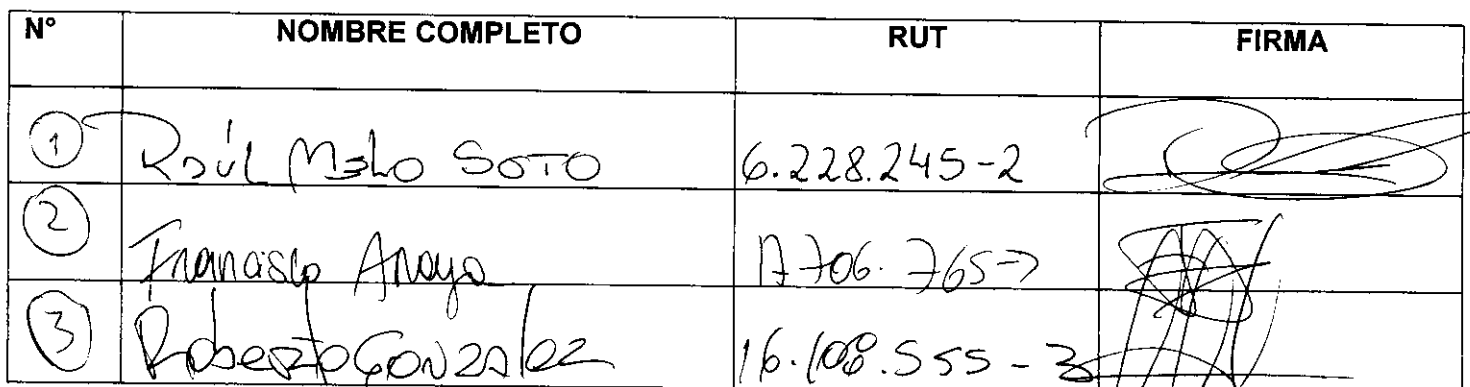 N° NOMBRE COMPLETO RUT FIRMA
1 Raúl Melo Soto 6.228.245-2
2 Francisco Araya 17.706.765-7
3 Roberto Gonzalez 16.108.555-3